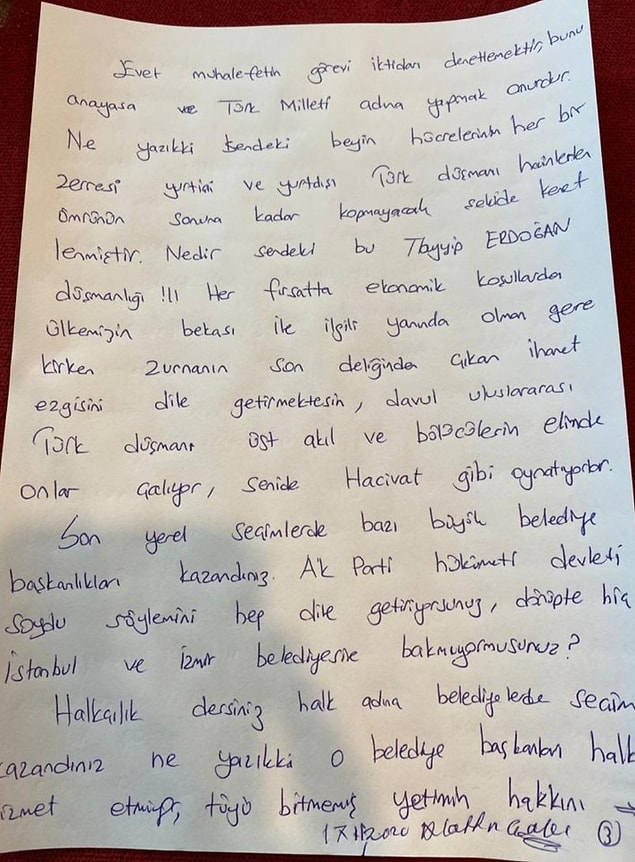 Evet muhalefetin görevi iktidarı denetlemektir, bunu
anayasa ve Türk Milleti adına yapmak onurdur.
Ne yazıkki sendeki beyin hücrelerinin her bir
zerresi yurtiçi ve yurtdışı Türk düşmanı hainlerden
ömrünün sonuna kadar kopmayacak şekilde kenet
lenmiştir. Nedir sendeki bu Tayyip ERDOĞAN
düşmanlığı !!! Her fırsatta ekonomik koşullarda
ülkemizin bekası ile ilgili yanında olman gere
kirken zurnanın son deliğinden çıkan ihanet
ezgisini dile getirmektesin, davul uluslararası
Türk düşmanı üst akıl ve bölücülerin elinde
onlar çalıyor, senide Hacivat gibi oynatıyorlar.
Son yerel seçimlerde bazı büyük belediye
başkanlıkları kazandınız. AK Parti hükümeti devleti
soydu söylemini hep dile getiriyorsunuz, dönüpte hiç
İstanbul ve İzmir belediyesine bakmıyormusunuz?
Halkçılık dersiniz halk adına belediyelerde seçim
kazandınız ne yazıkki o belediye başkanları halk
izmet etmiyor, tüyü bitmemiş yetimin hakkını →
2020 Alaattin Çakıcı 3